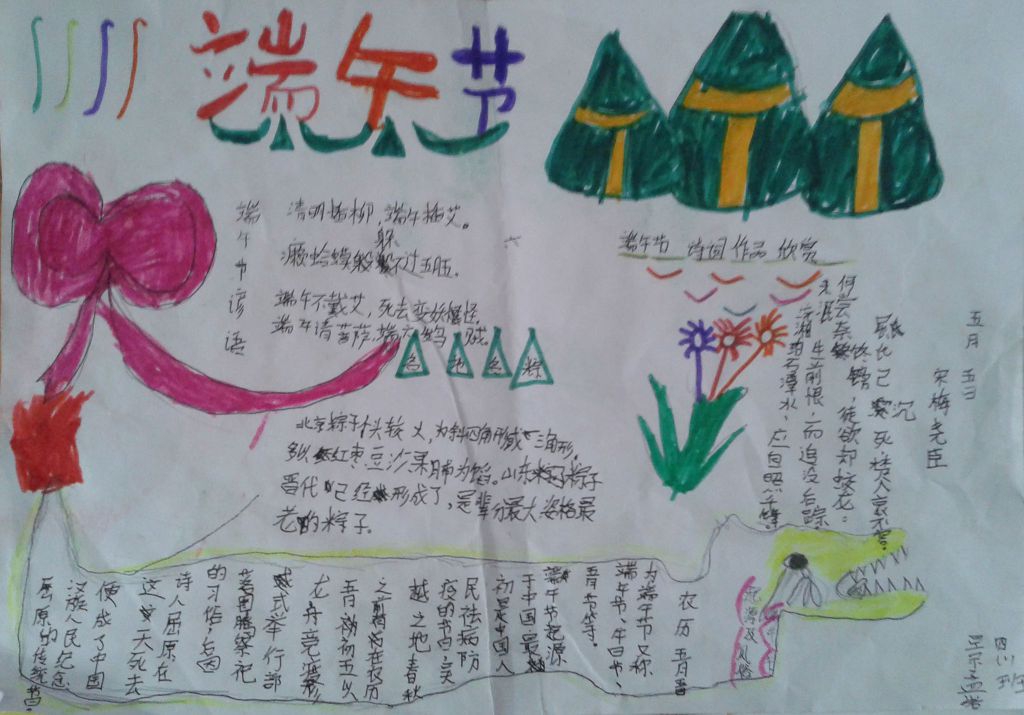 端午节
端午节谚语
清明插柳,端午插艾。
癞蛤蟆躲不过五月五。
端午不戴艾,死去变妖怪。
端午请菩萨,端六
各地名粽
北京粽子个头较大,为斜四角形或三角形。
多以红枣豆沙果脯为馅。山东粽子
晋代已经形成了,是辈分最大资格最
老的粽子。
端午节 诗词作品 欣赏
五月五日
宋·梅尧臣
屈氏已沉死,楚人哀不容。
何尝奈谗谤,徒欲却蛟龙。
未泯生前恨,而追没后踪。
沅湘碧潭水,应自照千峰
起源及风俗
农历五月五
为端午节又称
端午节、午日节、
五月节等。
端午节起源
于中国最
初是中国人
民祛病防
疫的节日,吴
越之地春秋
之前有在农历
五月初五以
龙舟竞渡形
式举行部
落图腾祭祀
的习俗,后因
诗人屈原在
这一天死去
便成了中国
汉族人民纪念
屈原的传统节
四川班